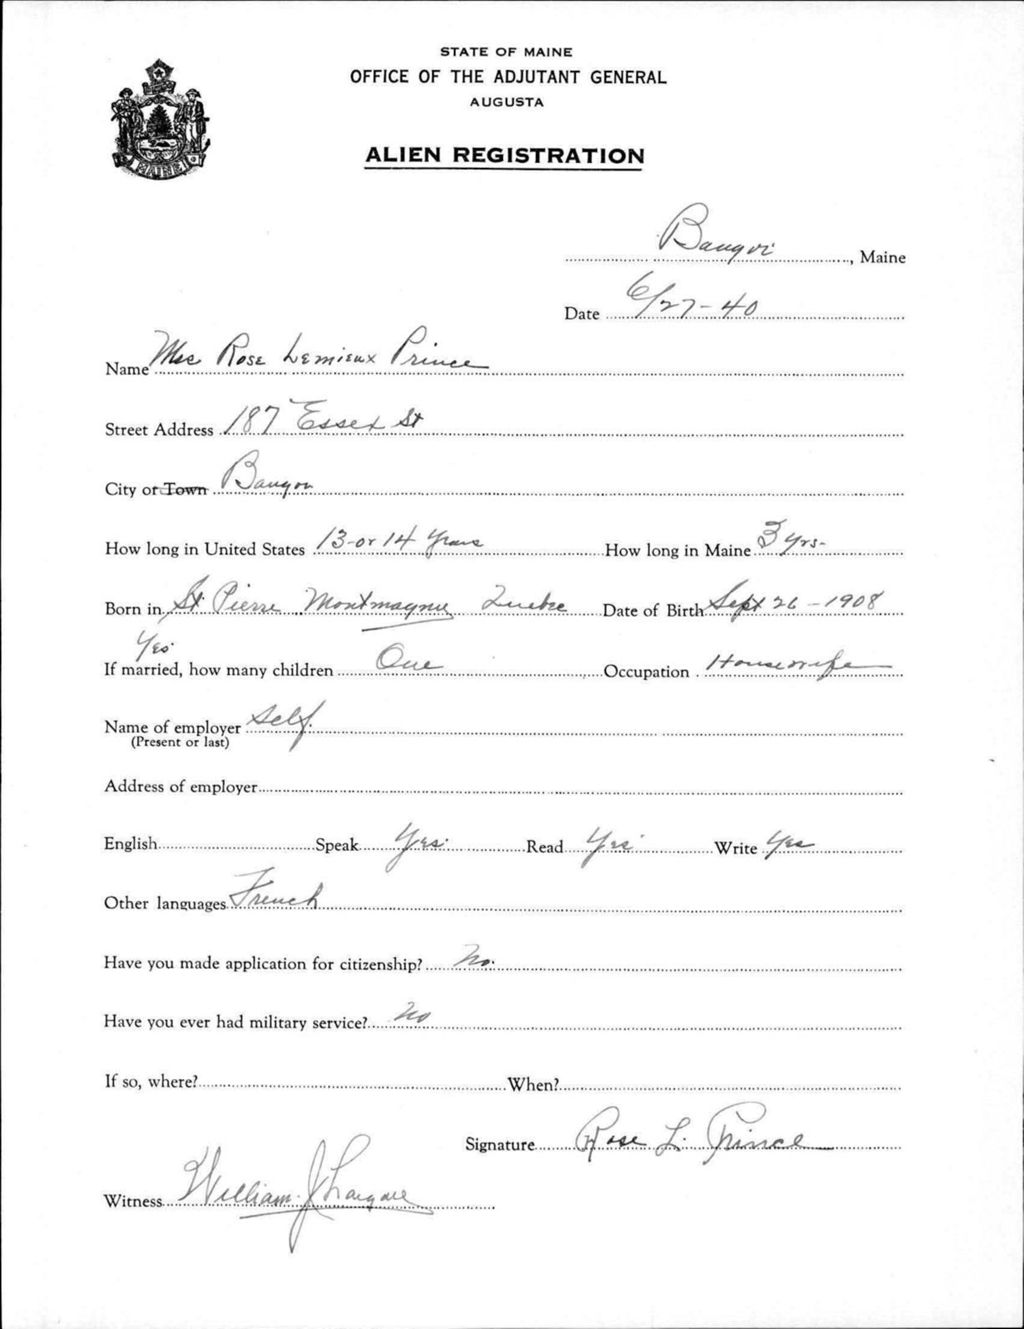 STATE OF MAINE
OFFICE OF THE ADJUTANT GENERAL
AUGUSTA
ALIEN REGISTRATION
MAINE
Bangor, Maine
Date 6/27-40
Name Mrs Rose Lemieux Prince
Street Address 187 Essex St
City or Town Bangor
How long in United States 13-or 14 years How long in Maine 3 yrs-
Born in St. Pierre Montmagny Quebec Date of Birth Sept 26 - 1908
Yes
If married, how many children One Occupation Housewife
Name of employer Self
(Present or last)
Address of employer
English Speak Yes Read Yes Write Yes
Other languages French
Have you made application for citizenship? No.
Have you ever had military service? No
If so, where? When?
Signature Rose L. Prince
Witness William J